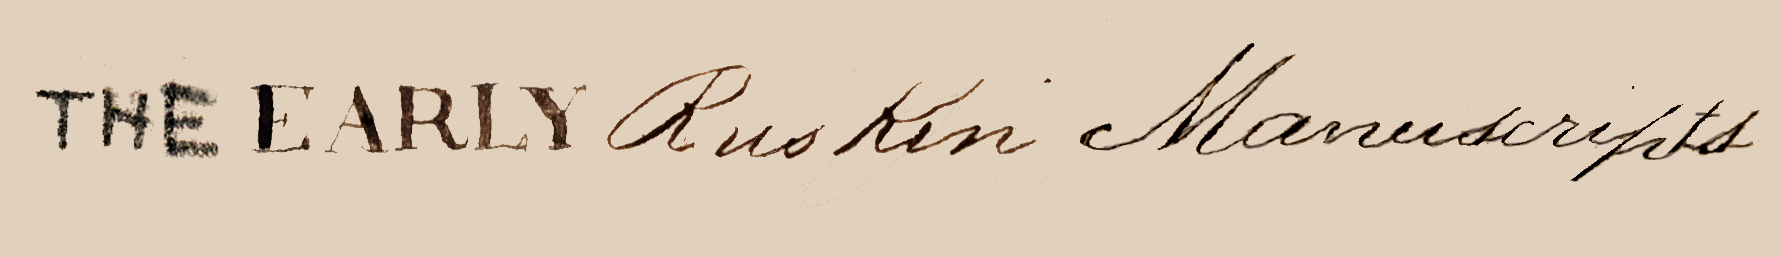 THE EARLY Ruskin Manuscripts